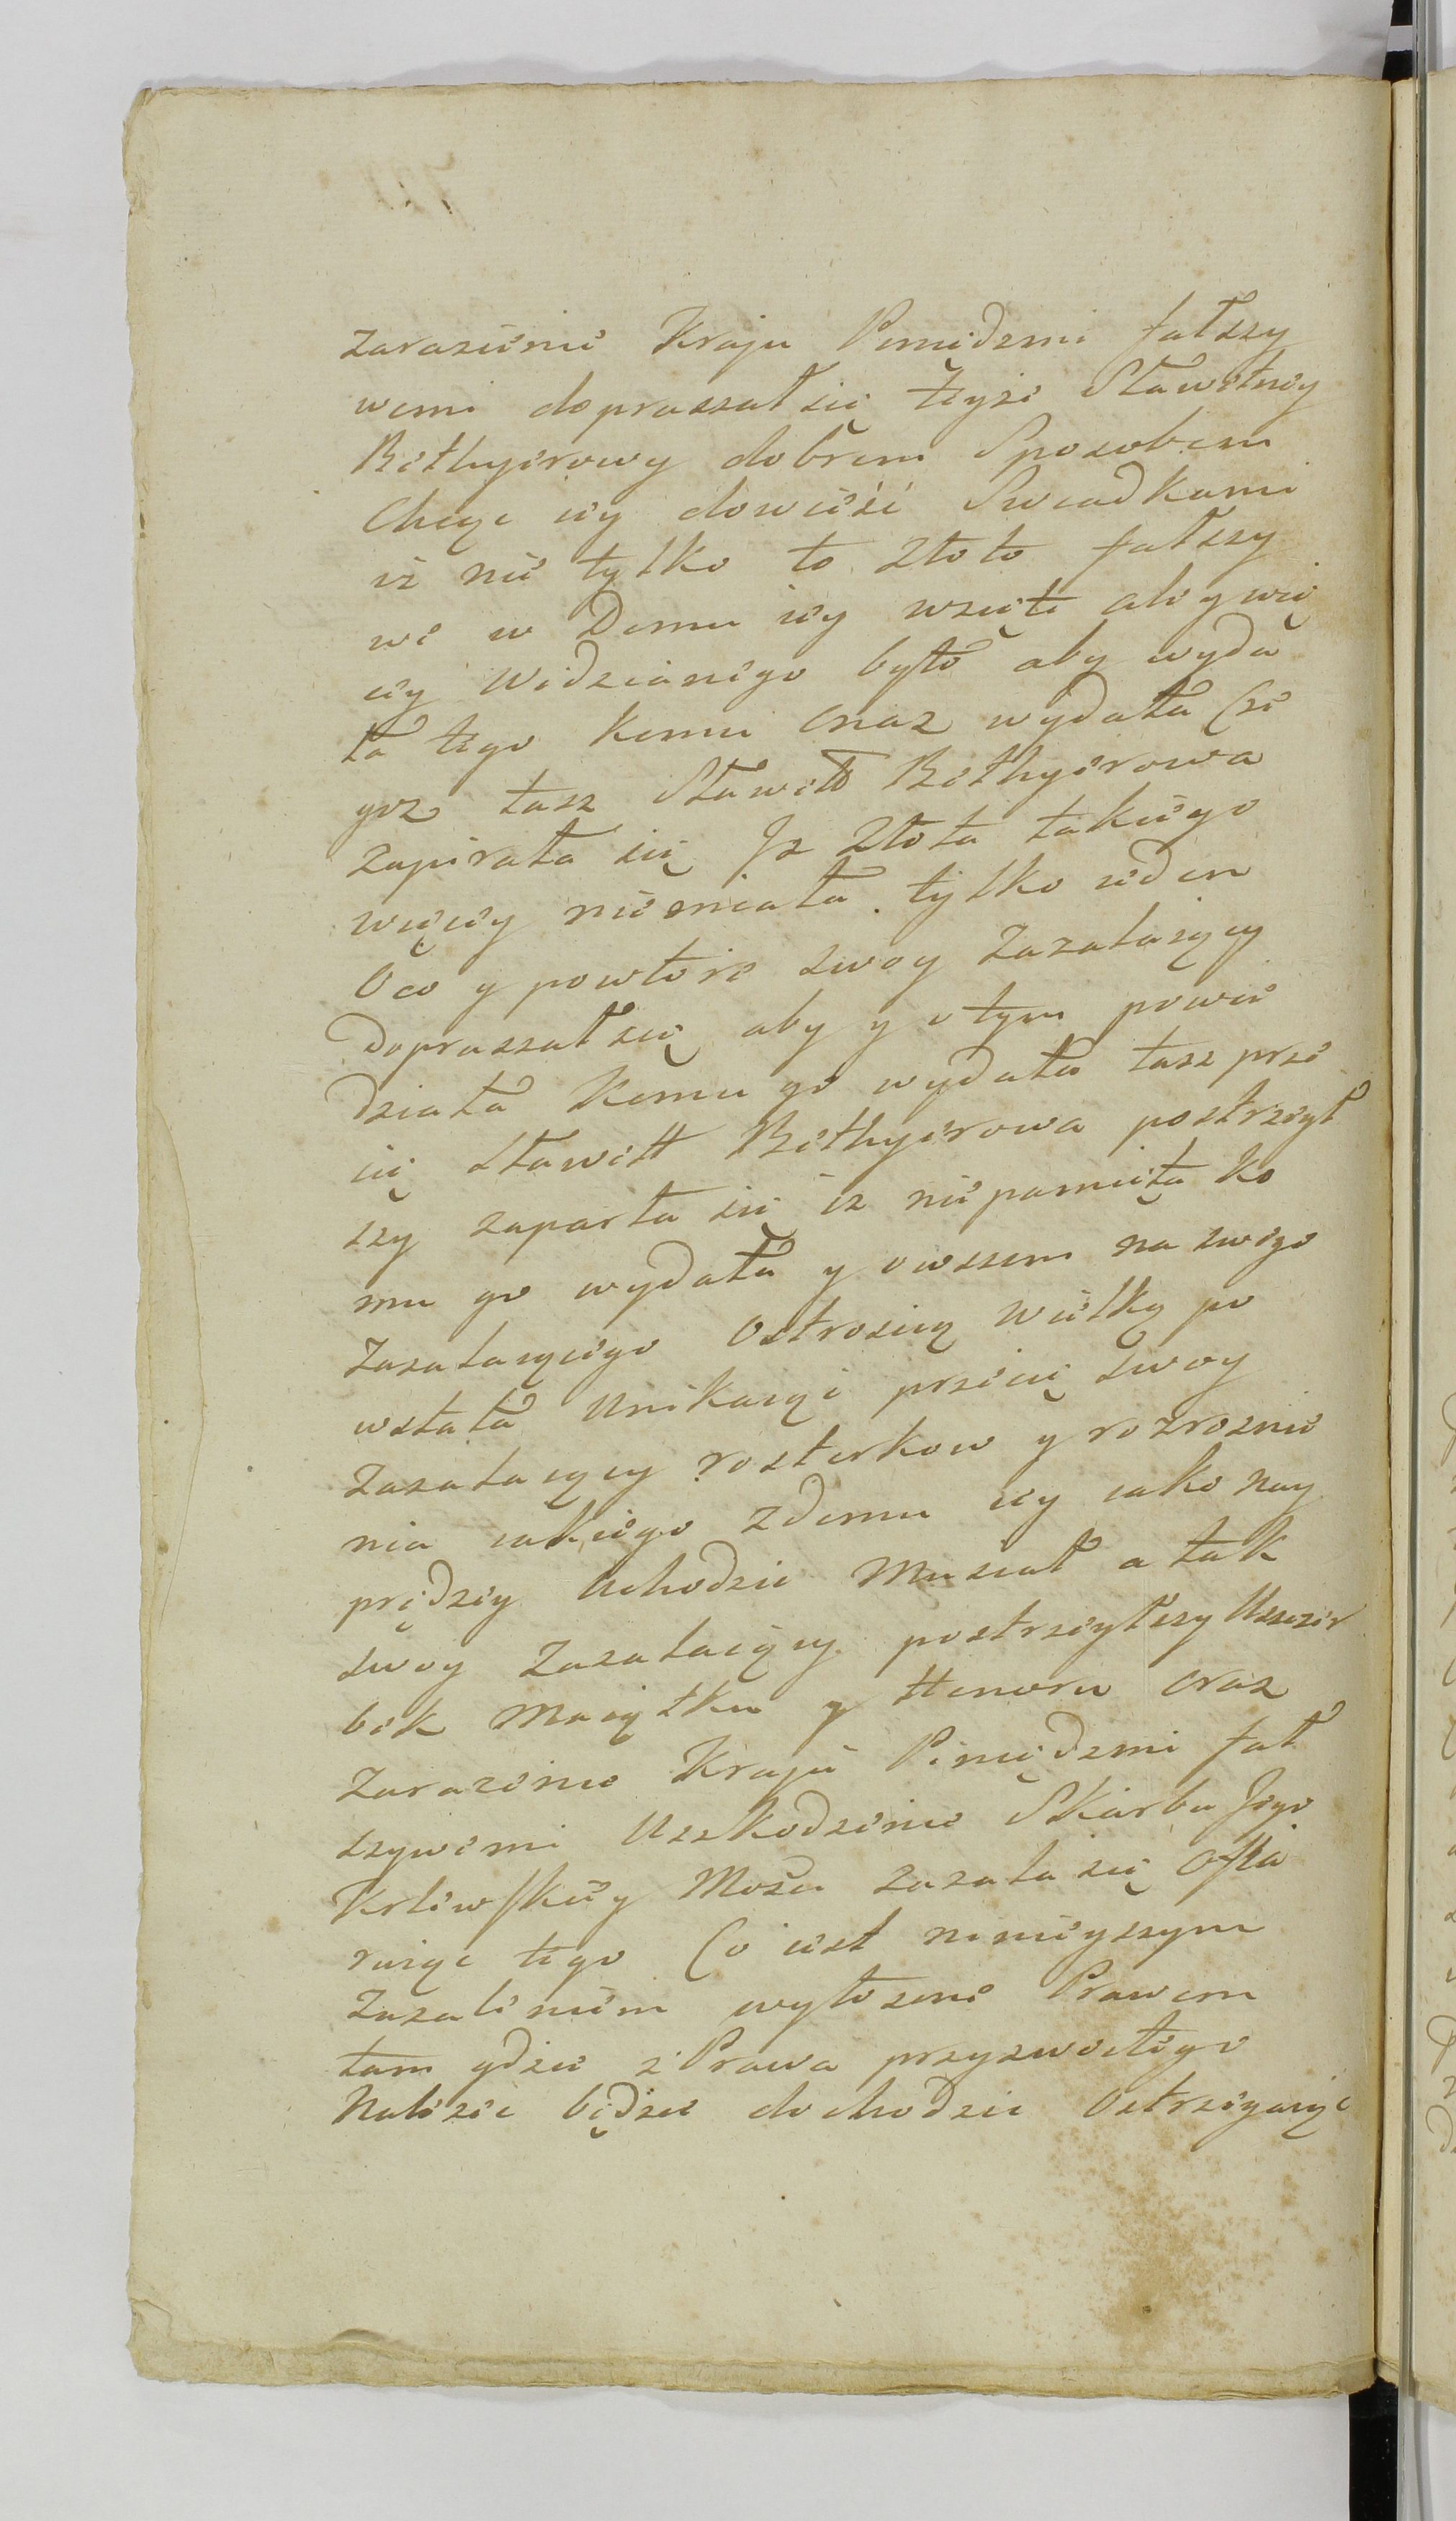 zarazienie Kraju Pieniędzmi fałszy
wemi dopraszał się Teyże Sławetney
Bethyerowy dobrem Sposobem
Chcąc iey dowieść Swiadkami
iż nie tylko to Złoto fałszy
we w Domu iey wzięte ale y wię
cey widzianego było aby wyda
ła tego komu onaz wydała Cze
goz tasz Sławett Bethyerowa
zapirała się Jz Złota takiego
więcey niemiała tylko ieden
Oco y powtore swoy zazalaiący
Dopraszał się aby y o tym powie
działa Komu go wydała tasz prze
cię Sławett Bethyerowa postrzegł
szy zaparła się iz nie pamięta ko
mu go wydała y owszem na swego
zazalaiącego Ostroscią wielką po
wstała unikaiąc przecię swoy
Zazalaiący rosterkow y rozroznie
nia iakiego zdomu iey iako nay
prędzey Uchodzic Musiał a tak
swoy Zazalaiący postrzegłszy Uszczer
bek Maiątku y Honoru oraz
Zarazenie Kraju Pieniędzmi fał
szywemi Uszkodzenie Skarbu Jego
Krlewskiey Mosci zazala się Ofia
ruiąc tego Co iest ninieyszym
Zazaleniem wyłozone Prawem
tam gdzie z Prawa przyzwoitego
Nalezec będzie dochodzic Ostrzegaiąc